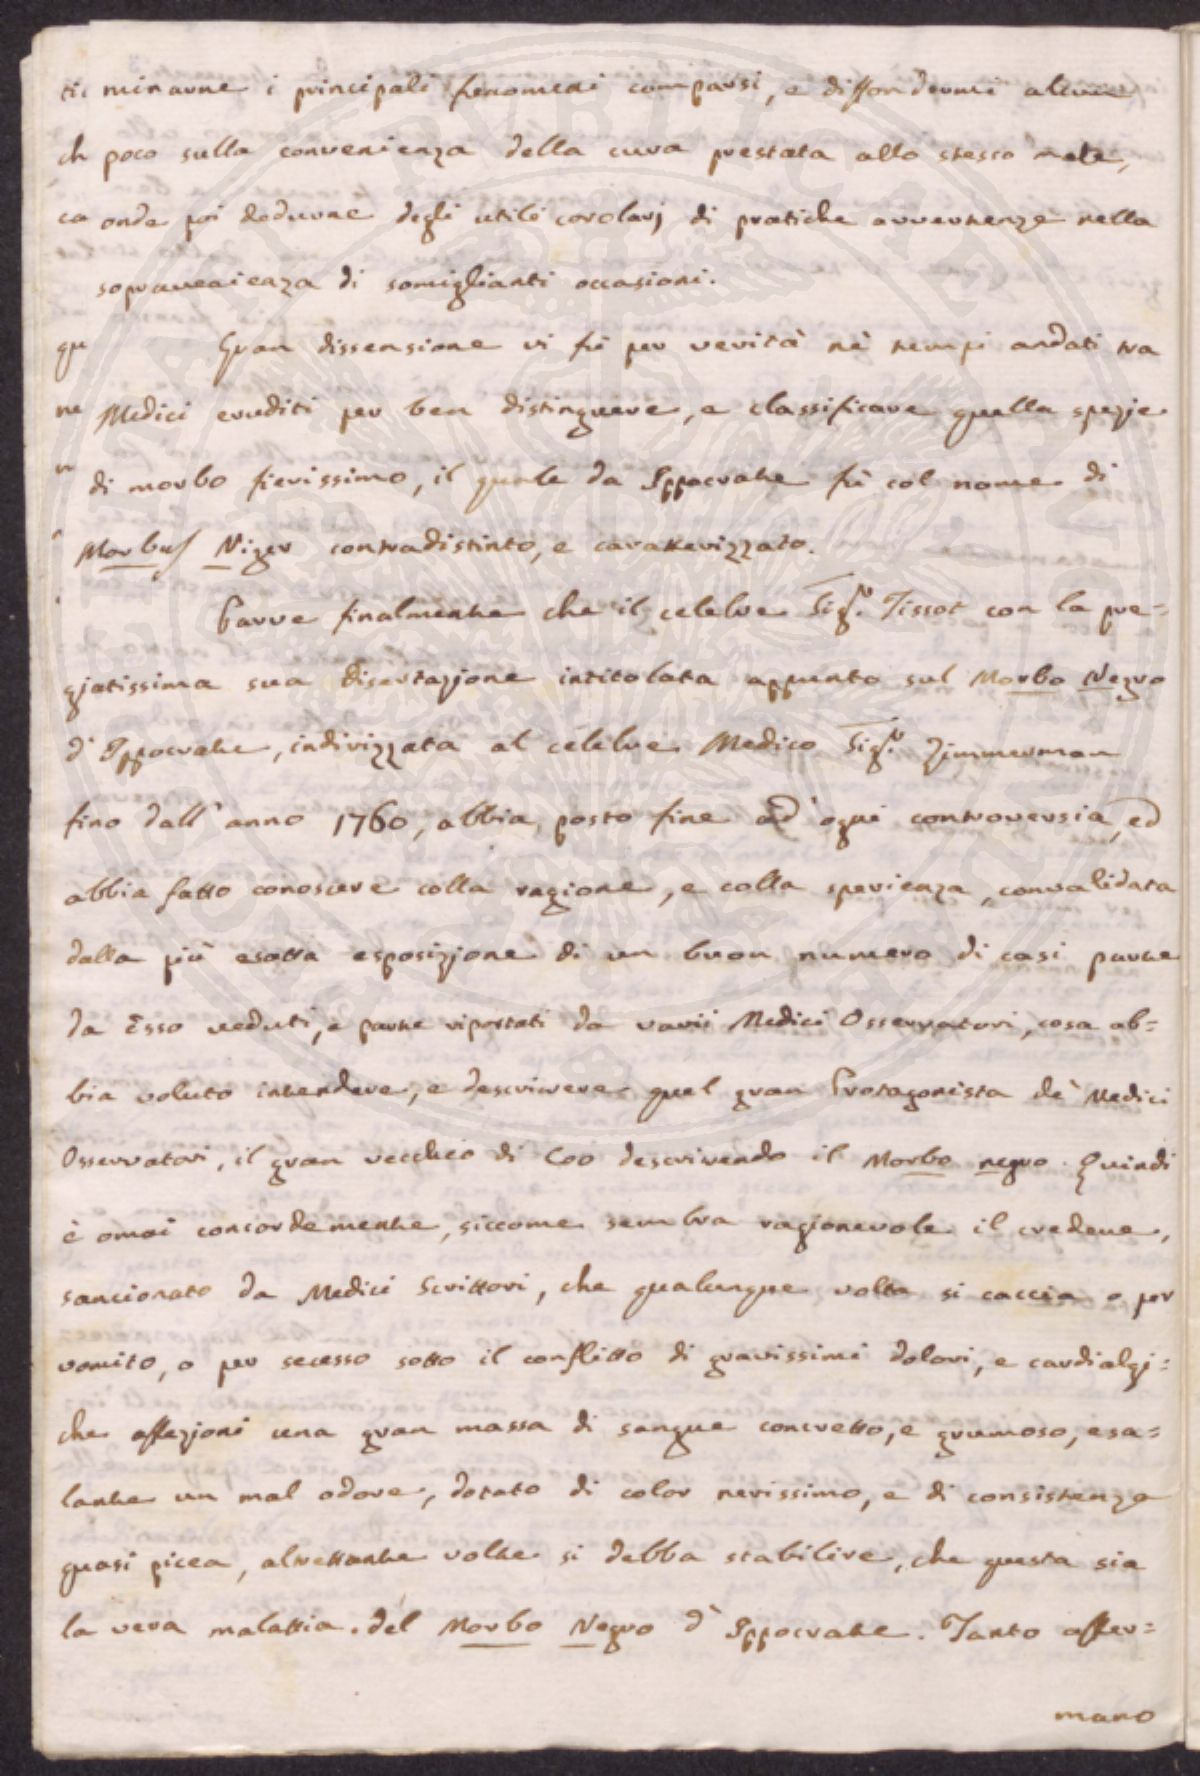 minarne i principali fenomeni comparsi, e diffondermi alcun
poco sulla convenienza della cura prestata allo stesso male,
onde poi dedurne degli utili corolarj di pratiche avvertenze nella
sopravenienza di somiglianti occasioni.
Gran dissensione vi fù per verità nè tempi andati tra
Medici eruditi per ben distinguere, e classificare quella spezie
di morbo fierissimo, il quale da Ippocrate fù col nome di
Morbus Niger contradistinto, e caratterizzato.
Parve finalmente che il celebre Sig.r Tissot con la pre=
giatissima sua disertazione intitolata appunto sul Morbo Negro
d'Ippocrate, indirizzata al celebre Medico Sig.r Zimmerman
fino dall'anno 1760, abbia posto fine ad ogni controversia, ed
abbia fatto conoscere colla ragione, e colla sperienza, convalidata
dalla più esatta esposizione di un buon numero di casi parte
da Esso veduti, e parte riportati da varii Medici Osservatori, cosa ab=
bia voluto intendere, e descrivere quel gran Protagonista dè Medici
Osservatori, il gran vecchio di Coo descrivendo il Morbo negro. Quindi
è omai concordemente, siccome sembra ragionevole il credere,
sancionato da Medici Scrittori, che qualunque volta si caccia o per
vomito, o per secesso sotto il conflitto di gravissimi dolori, e cardialgi=
che affezioni una gran massa di sangue concretto, e grumoso, esa=
lante un mal odore, dotato di color nerissimo, e di consistenza
quasi picea, altrettante volte si debba stabilire, che questa sia
la vera malattia del Morbo Negro d'Ippocrate. Tanto affer=
mano